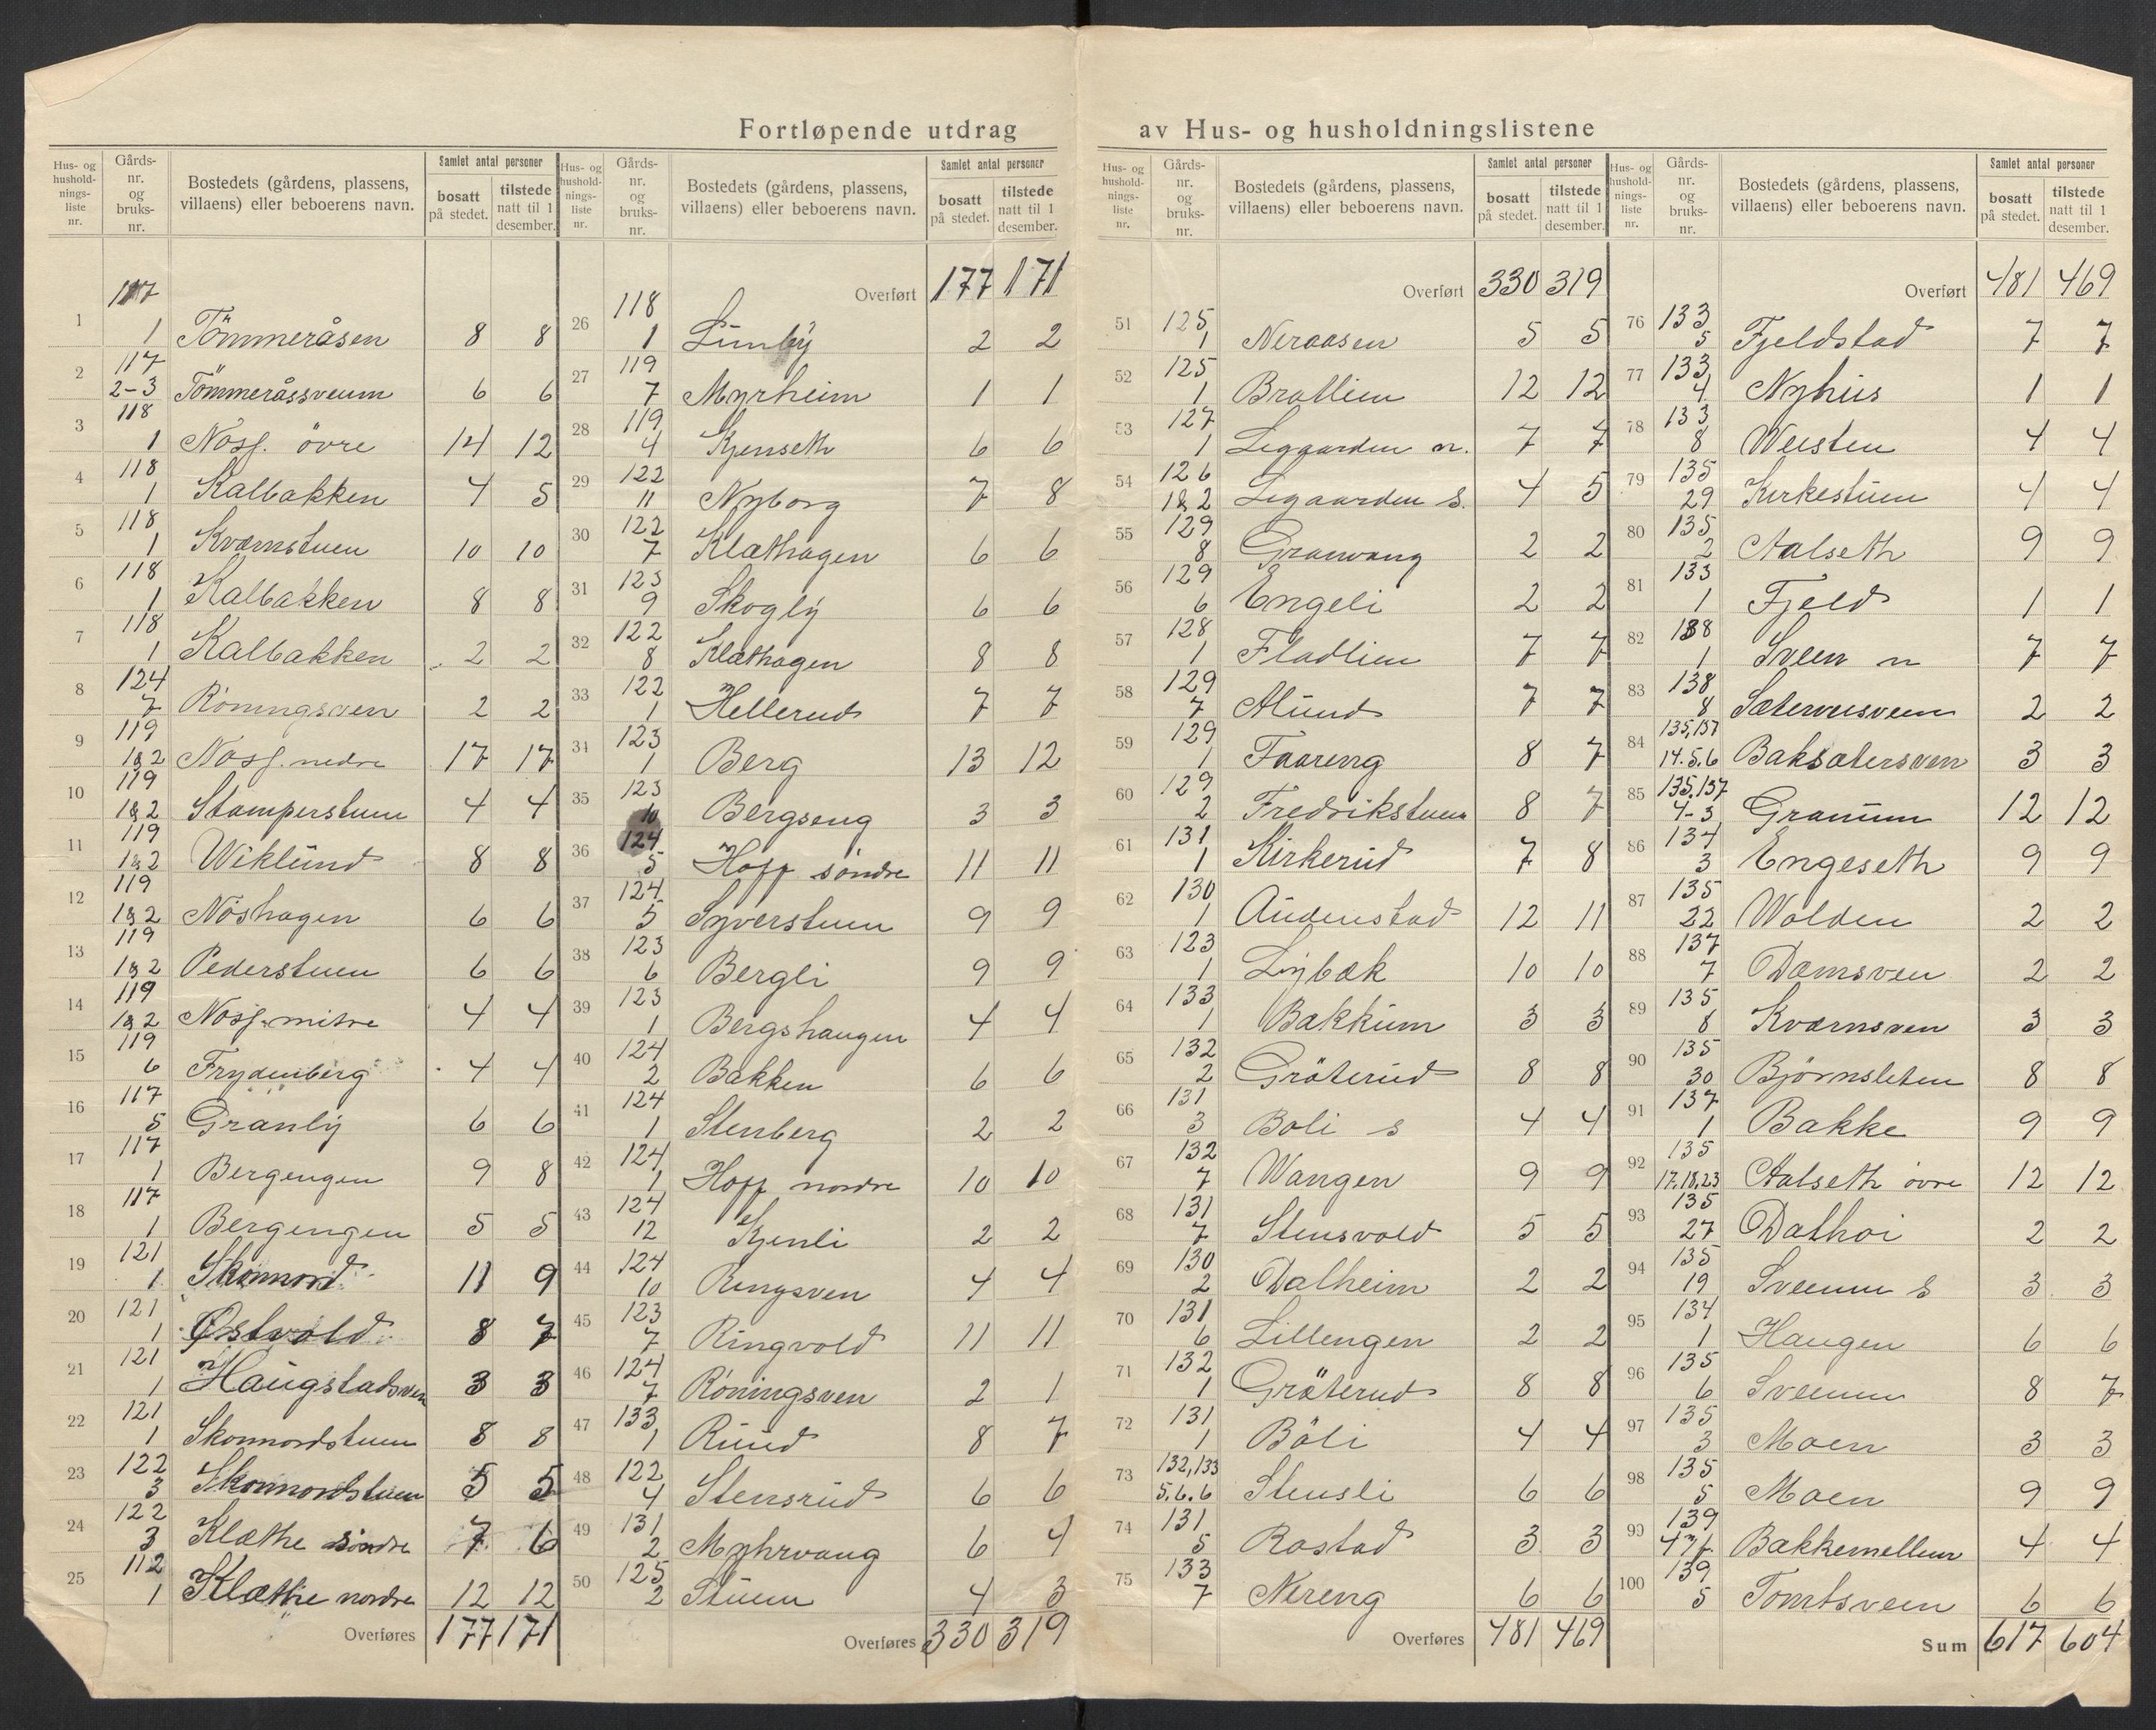 Fortløpende utdrag av Hus- og husholdningslistene
Hus- og hushold- nings- liste nr. Gårds- nr. og bruks- nr. Bostedets (gårdens, plassens, villaens) eller beboerens navn. Samlet antal personer bosatt på stedet. tilstede natt til 1 desember.
1 117 1 Tömmeråsen 8 8
2 117 2-3 Tömmeråssveum 6 6
3 118 1 Nosf. övre 14 12
4 118 1 Kalbakken 4 5
5 118 1 Kværnstuen 10 10
6 118 1 Kalbakken 8 8
7 118 1 Kalbakken 2 2
8 124 7 Röningsven 2 2
9 119 1&2 Nosf. nedre 17 17
10 119 1&2 Stamperstuen 4 4
11 119 1&2 Wiklund 8 8
12 119 1&2 Nöshagen 6 6
13 119 1&2 Pederstuen 6 6
14 119 1&2 Nosf. mitre 4 4
15 119 6 Frydenberg 4 4
16 117 5 Granly 6 6
17 117 1 Bergengen 9 8
18 117 1 Bergengen 5 5
19 121 1 Skonnord 11 9
20 121 1 Østvold 8 7
21 121 1 Haugstadsven 3 3
22 121 1 Skonnordstuen 8 8
23 122 3 Skonnordstuen 5 5
24 122 3 Klæthe söndre 7 6
25 112 1 Klæthe nordre 12 12
Overføres 177 171
Hus- og hushold- nings- liste nr. Gårds- nr. og bruks- nr. Bostedets (gårdens, plassens, villaens) eller beboerens navn. Samlet antal personer bosatt på stedet. tilstede natt til 1 desember.
Overført 177 171
26 118 1 Lunby 2 2
27 119 7 Myrheim 1 1
28 119 4 Kjenseth 6 6
29 122 11 Nyborg 7 8
30 122 7 Klæthagen 6 6
31 123 9 Skogly 6 6
32 122 8 Klæthagen 8 8
33 122 1 Hellerud 7 7
34 123 1 Berg 13 12
35 123 10 Bergseng 3 3
36 124 5 Hoff söndre 11 11
37 124 5 Syverstuen 9 9
38 123 6 Bergli 9 9
39 123 1 Bergshaugen 4 4
40 124 2 Bakken 6 6
41 124 1 Stenberg 2 2
42 124 1 Hoff nordre 10 10
43 124 12 Kjenli 2 2
44 124 10 Ringsven 4 4
45 123 7 Ringvold 11 11
46 124 7 Röningsven 2 1
47 133 1 Ruud 8 7
48 122 4 Stensrud 6 6
49 131 2 Myhrvang 6 4
50 125 2 Stuen 4 3
Overføres 330 319
Hus- og hushold- nings- liste nr. Gårds- nr. og bruks- nr. Bostedets (gårdens, plassens, villaens) eller beboerens navn. Samlet antal personer bosatt på stedet. tilstede natt til 1 desember.
Overført 330 319
51 125 1 Neraasen 5 5
52 125 1 Bratlien 12 12
53 127 1 Legaarden n. 7 7
54 126 1&2 Legaarden s. 4 5
55 129 8 Granvang 2 2
56 129 6 Engeli 2 2
57 128 1 Fladlien 7 7
58 129 7 Alund 7 7
59 129 1 Faareng 8 7
60 129 2 Fredrikstuen 8 7
61 131 1 Kirkerud 7 8
62 130 1 Audenstad 12 11
63 123 1 Lybæk 10 10
64 133 1 Bakkum 3 3
65 132 2 Gröterud 8 8
66 131 3 Boli s 4 4
67 132 7 Wangen 9 9
68 131 7 Stensvold 5 5
69 130 2 Dalheim 2 2
70 131 6 Lillengen 2 2
71 132 1 Gröterud 8 8
72 131 1 Böli 4 4
73 132,133 5.6.6 Stensli 6 6
74 131 5 Rostad 3 3
75 133 7 Nereng 6 6
Overføres 481 469
Hus- og hushold- nings- liste nr. Gårds- nr. og bruks- nr. Bostedets (gårdens, plassens, villaens) eller beboerens navn. Samlet antal personer bosatt på stedet. tilstede natt til 1 desember.
Overført 481 469
76 133 5 Fjeldstad 7 7
77 133 4 Nyhus 1 1
78 133 8 Weisten 4 4
79 135 29 Kirkestuen 4 4
80 135 2 Aalseth 9 9
81 133 1 Fjeld 1 1
82 138 1 Sveen n 7 7
83 138 8 2 2
84 135,137 14.5.6 Baksætersven 3 3
85 135,137 4-3 Granum 12 12
86 134 3 Engeseth 9 9
87 135 22 Wolden 2 2
88 137 7 Damsven 2 2
89 135 8 Kværnsven 3 3
90 135 30 Bjørnsleten 8 8
91 137 1 Bakke 9 9
92 135 17.18.23 Aalseth övre 12 12
93 135 27 Dalhoi 2 2
94 135 19 Sveum s 3 3
95 134 1 Haugen 6 6
96 135 6 Sveum 8 7
97 135 3 Moen 3 3
98 135 5 Moen 9 9
99 139 Bakkemellem 4 4
100 139 5 Tomtsveen 6 6
Sum 617 604